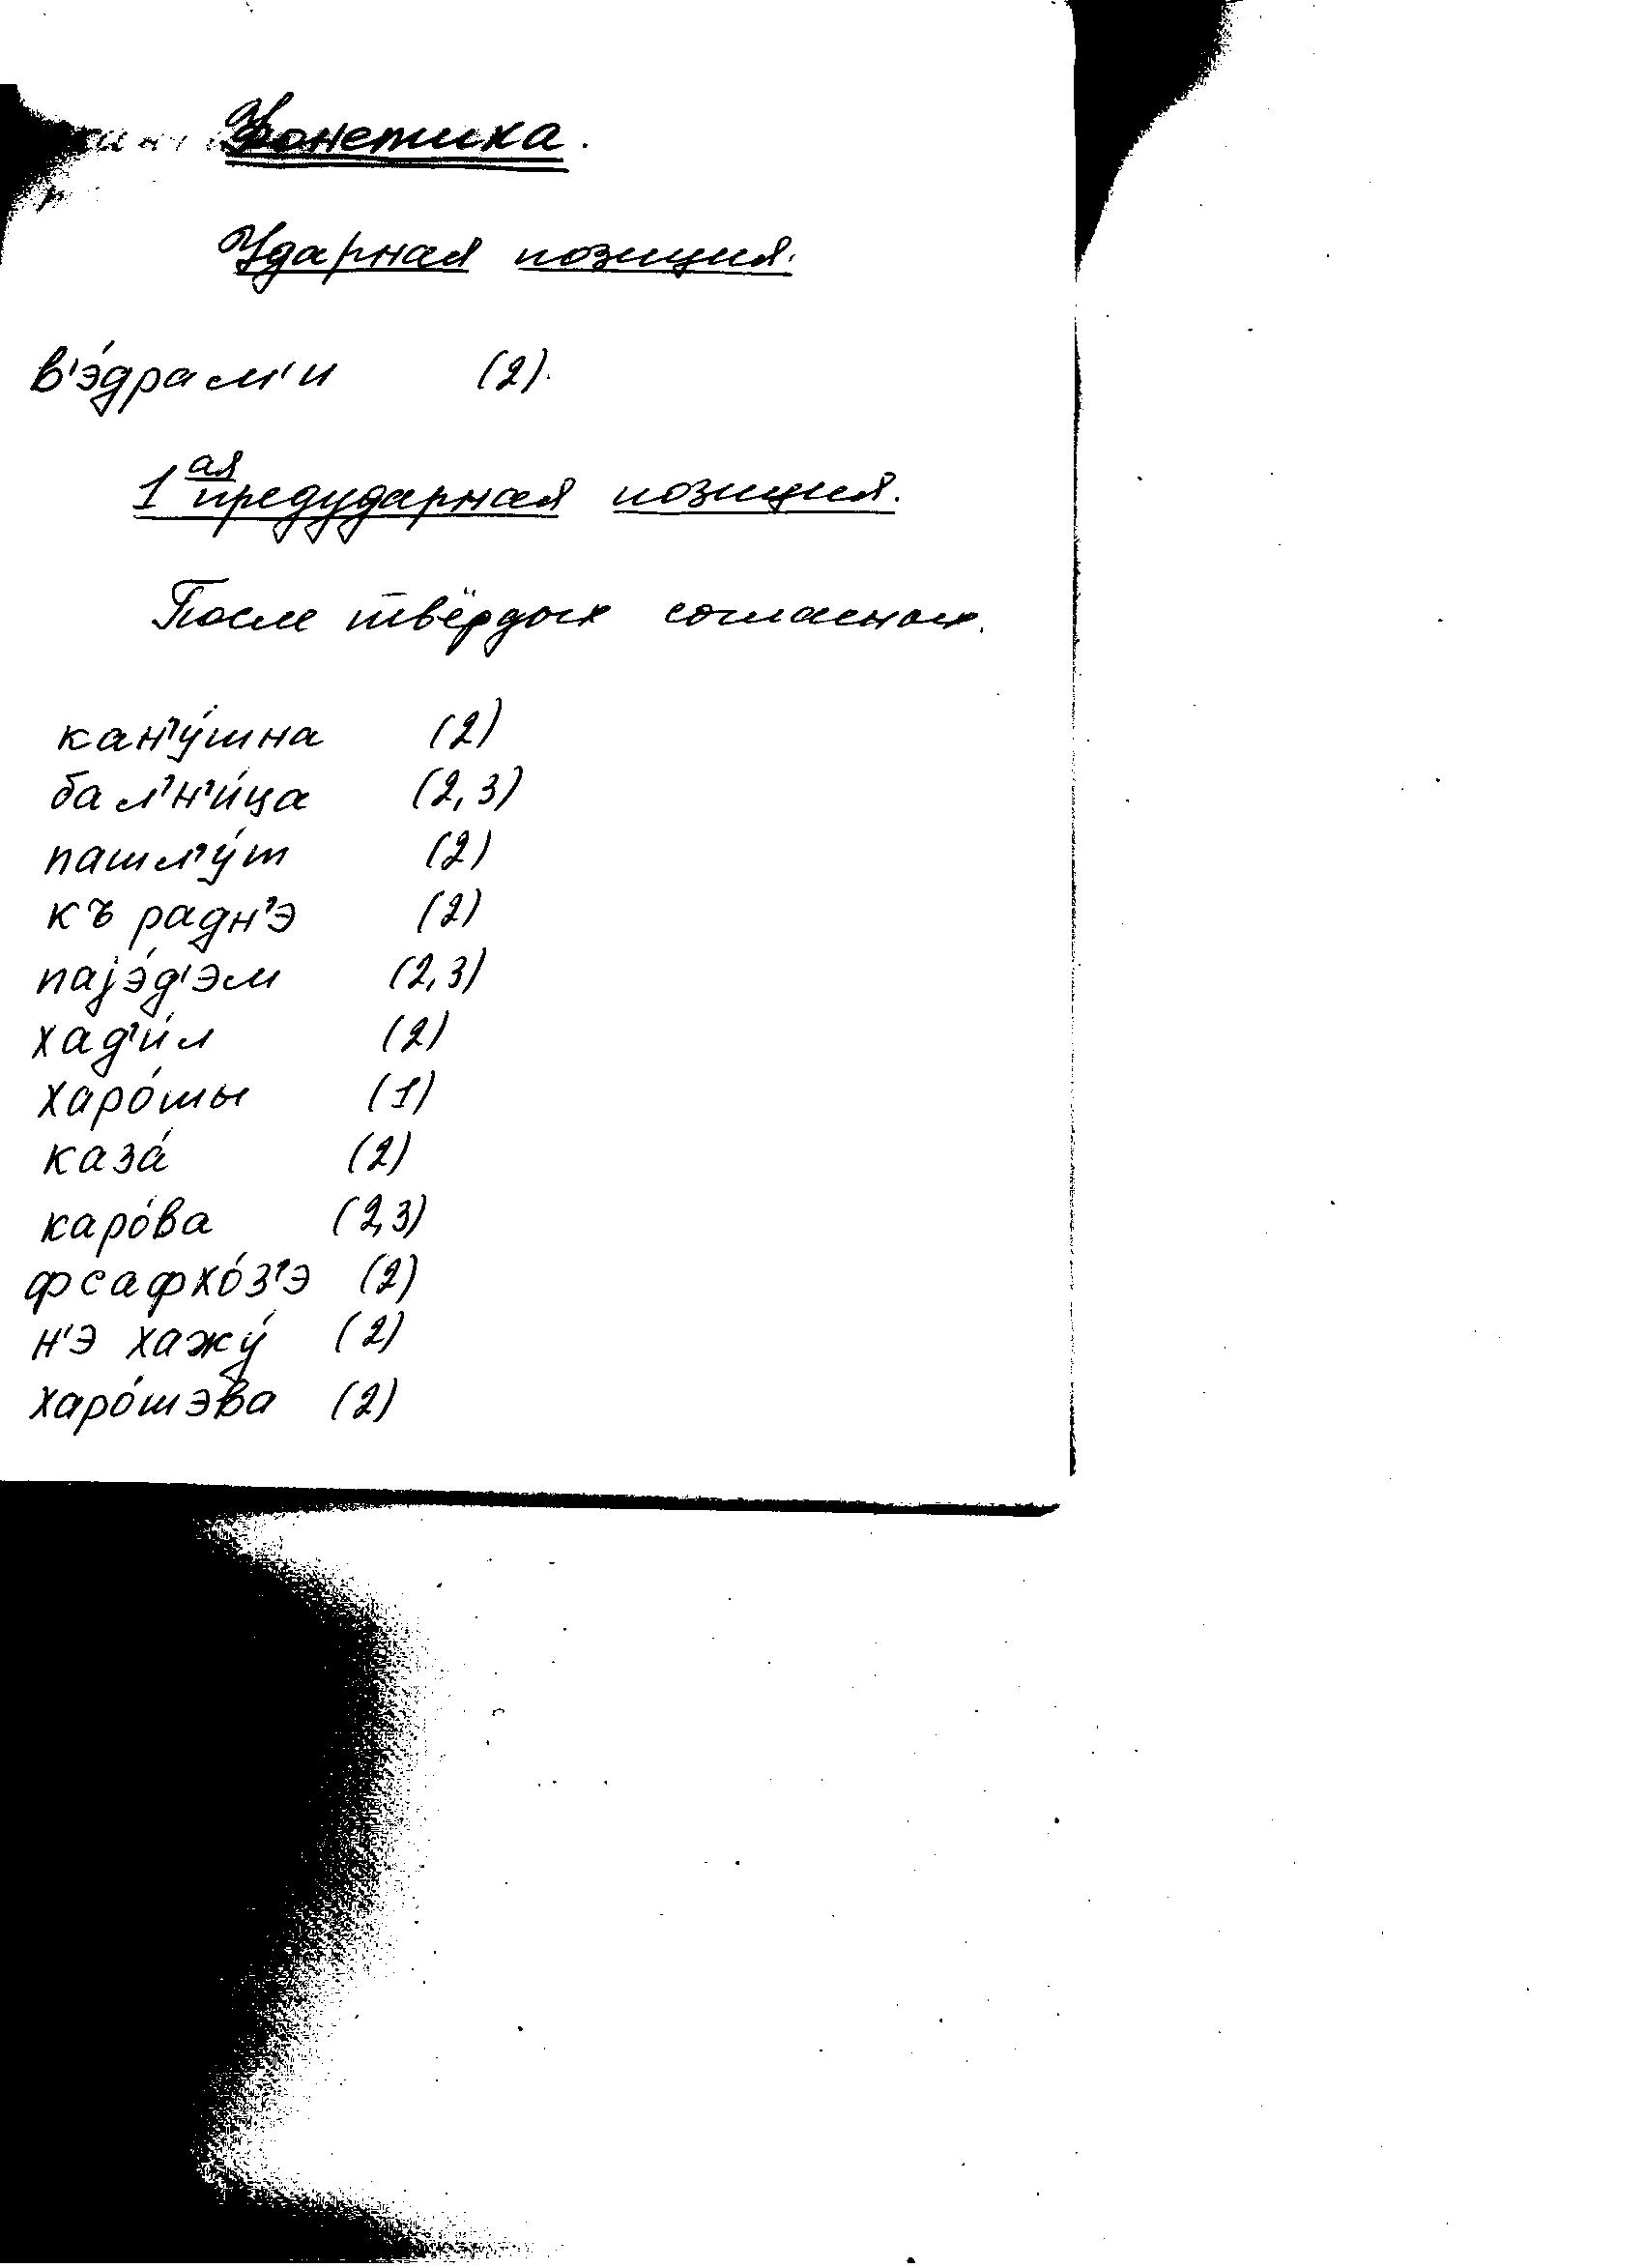 Фонетика.
Ударная позиция.
в'э́драм'и (2).
1ая предударная позиция.
После твёрдых согласных.
кан'у́шна (2)
бал'н'и́ца (2,3)
пашл'у́т (2)
къ радн'э (2)
паjэ́д'эм (2,3)
хад'и́л (2)
харо́шы (1)
каза́ (2)
каро́ва (2,3)
фсафхо́з'э (2)
н'э хажу́ (2)
харо́шэва (2)